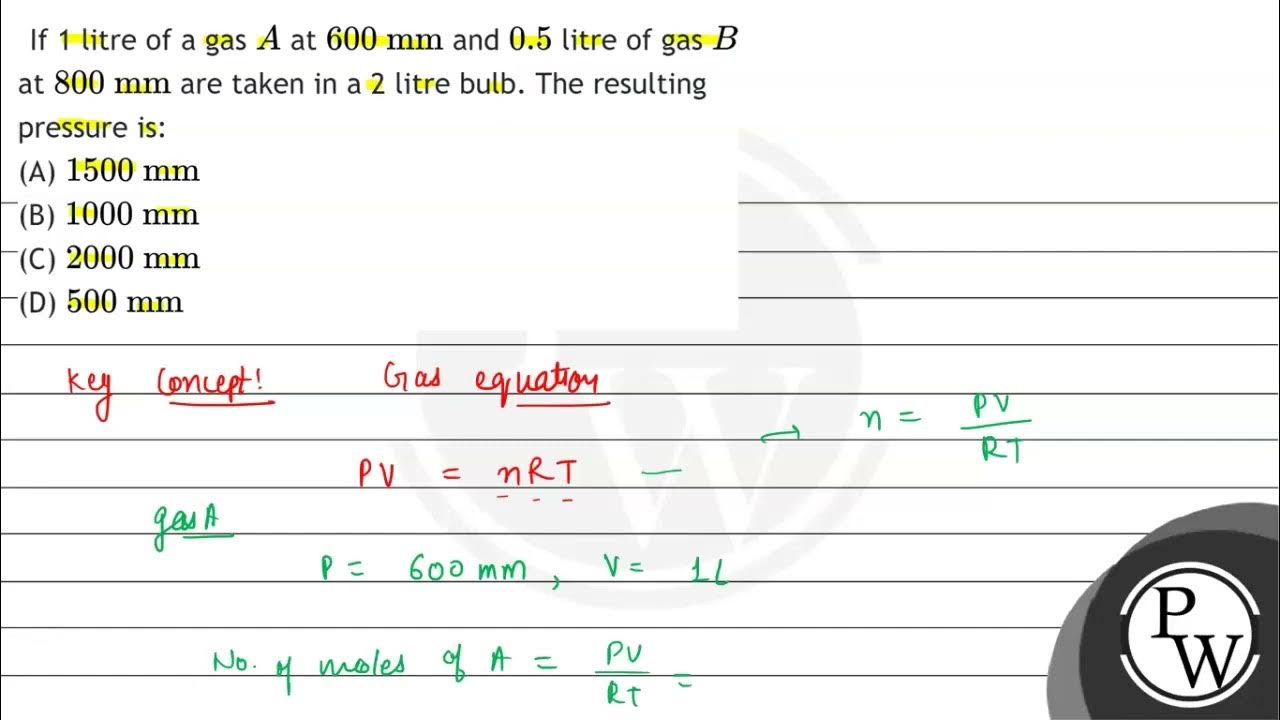 If 1 litre of a gas A at 600 mm and 0.5 litre of gas B
at 800 mm are taken in a 2 litre bulb. The resulting
pressure is:
(A) 1500 mm
(B) 1000 mm
(C) 2000 mm
(D) 500 mm
Key Concept! Gas equation
PV = nRT — → n = PV/RT
gas A
P = 600 mm, V = 1L
No. of moles of A = PV/RT =
PW